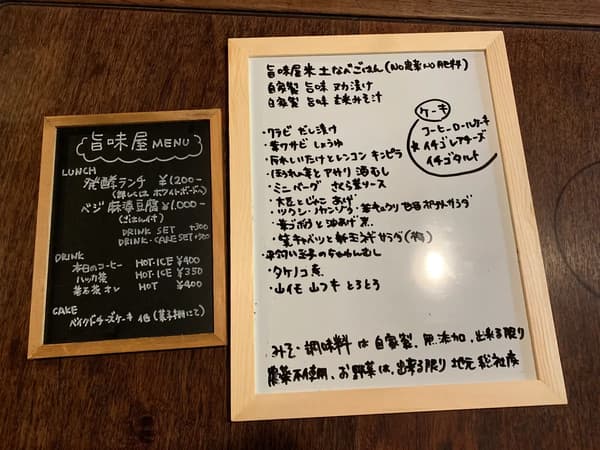 旨味屋 MENU
LUNCH
発酵ランチ ¥1,200-
(詳しくは ホワイトボードへ)
ベジ 麻婆豆腐 ¥1,000-
(ごはん付)
DRINK SET +300
DRINK・CAKE SET +700
DRINK
本日のコーヒー HOT・ICE ¥400
ハッカ茶 HOT・ICE ¥350
番茶 オレ HOT ¥400
CAKE
ベイクドチーズケーキ 他 (菓子棚にて)
旨味屋米 土なべごはん (NO農薬 NO肥料)
自家製 旨味 ヌカ漬け
自家製 旨味 玄米みそ汁
ケーキ
コーヒーロールケーキ
イチゴレアチーズ
イチゴタルト
・ワラビ だし漬け
・葉ワサビ しょうゆ
・原木しいたけとレンコン キンピラ
・ほうれん草と アサリ 酒むし
・ミニバーグ さくら葉ソース
・大豆と じゃこ あげ
・ツクシ・ノカンゾウ
ポテトサラダ
・葉ゴボウと油あげ 煮
・生キャベツと新玉ネギ サラダ(梅)
・平飼い玉子の ちゃわんむし
・タケノコ 煮
・山イモ 山フキ とろとろ
みそ・調味料は 自家製、無添加、出来る限り
農薬不使用、お野菜は、出来る限り 地元 総社産